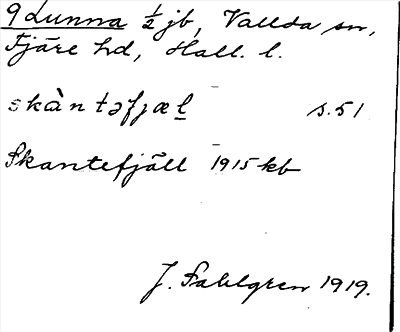 9 Lunna ½ jb, Vallda sn,
Fjäre hd, Hall. l.
skàntəfjæl̲ s. 51
Skantefjäll 1915 kb
J. Sahlgren 1919.